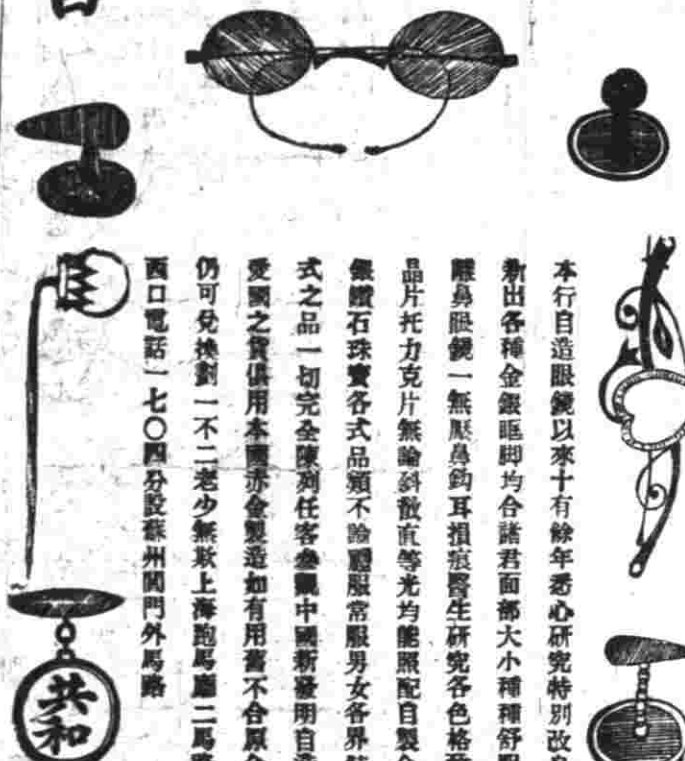 本行自造眼鏡以來十有餘年悉心研究特別改
新出各種金銀眶脚均合諸君面部大小種種舒
鼻眼鏡一無壓鼻鈎耳損痕醫生研究各色格
晶片托力克片無論斜散直等光均能照配自製
銀鑽石珠寶各式品類不論禮服常服男女各界
式之品一切完全陳列任客參觀中國新發明自造
愛國之貨俱用本國赤金製造如有用舊不合原
仍可兌換劃一不二老少無欺上海跑馬廳二馬路
西口電話一七〇四分設蘇州閶門外馬路
共和